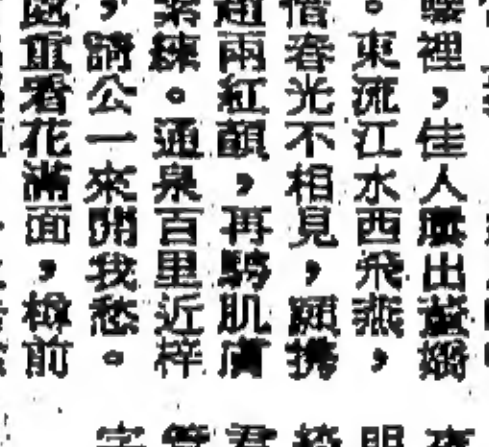 裡,佳人屢出董嬌
。東流江水西飛燕,
惜春光不相見,願携
趙兩紅顏,再騁肌膚
素練。通泉百里近梓
,請公一來開我愁。
處重看花滿面,樽前